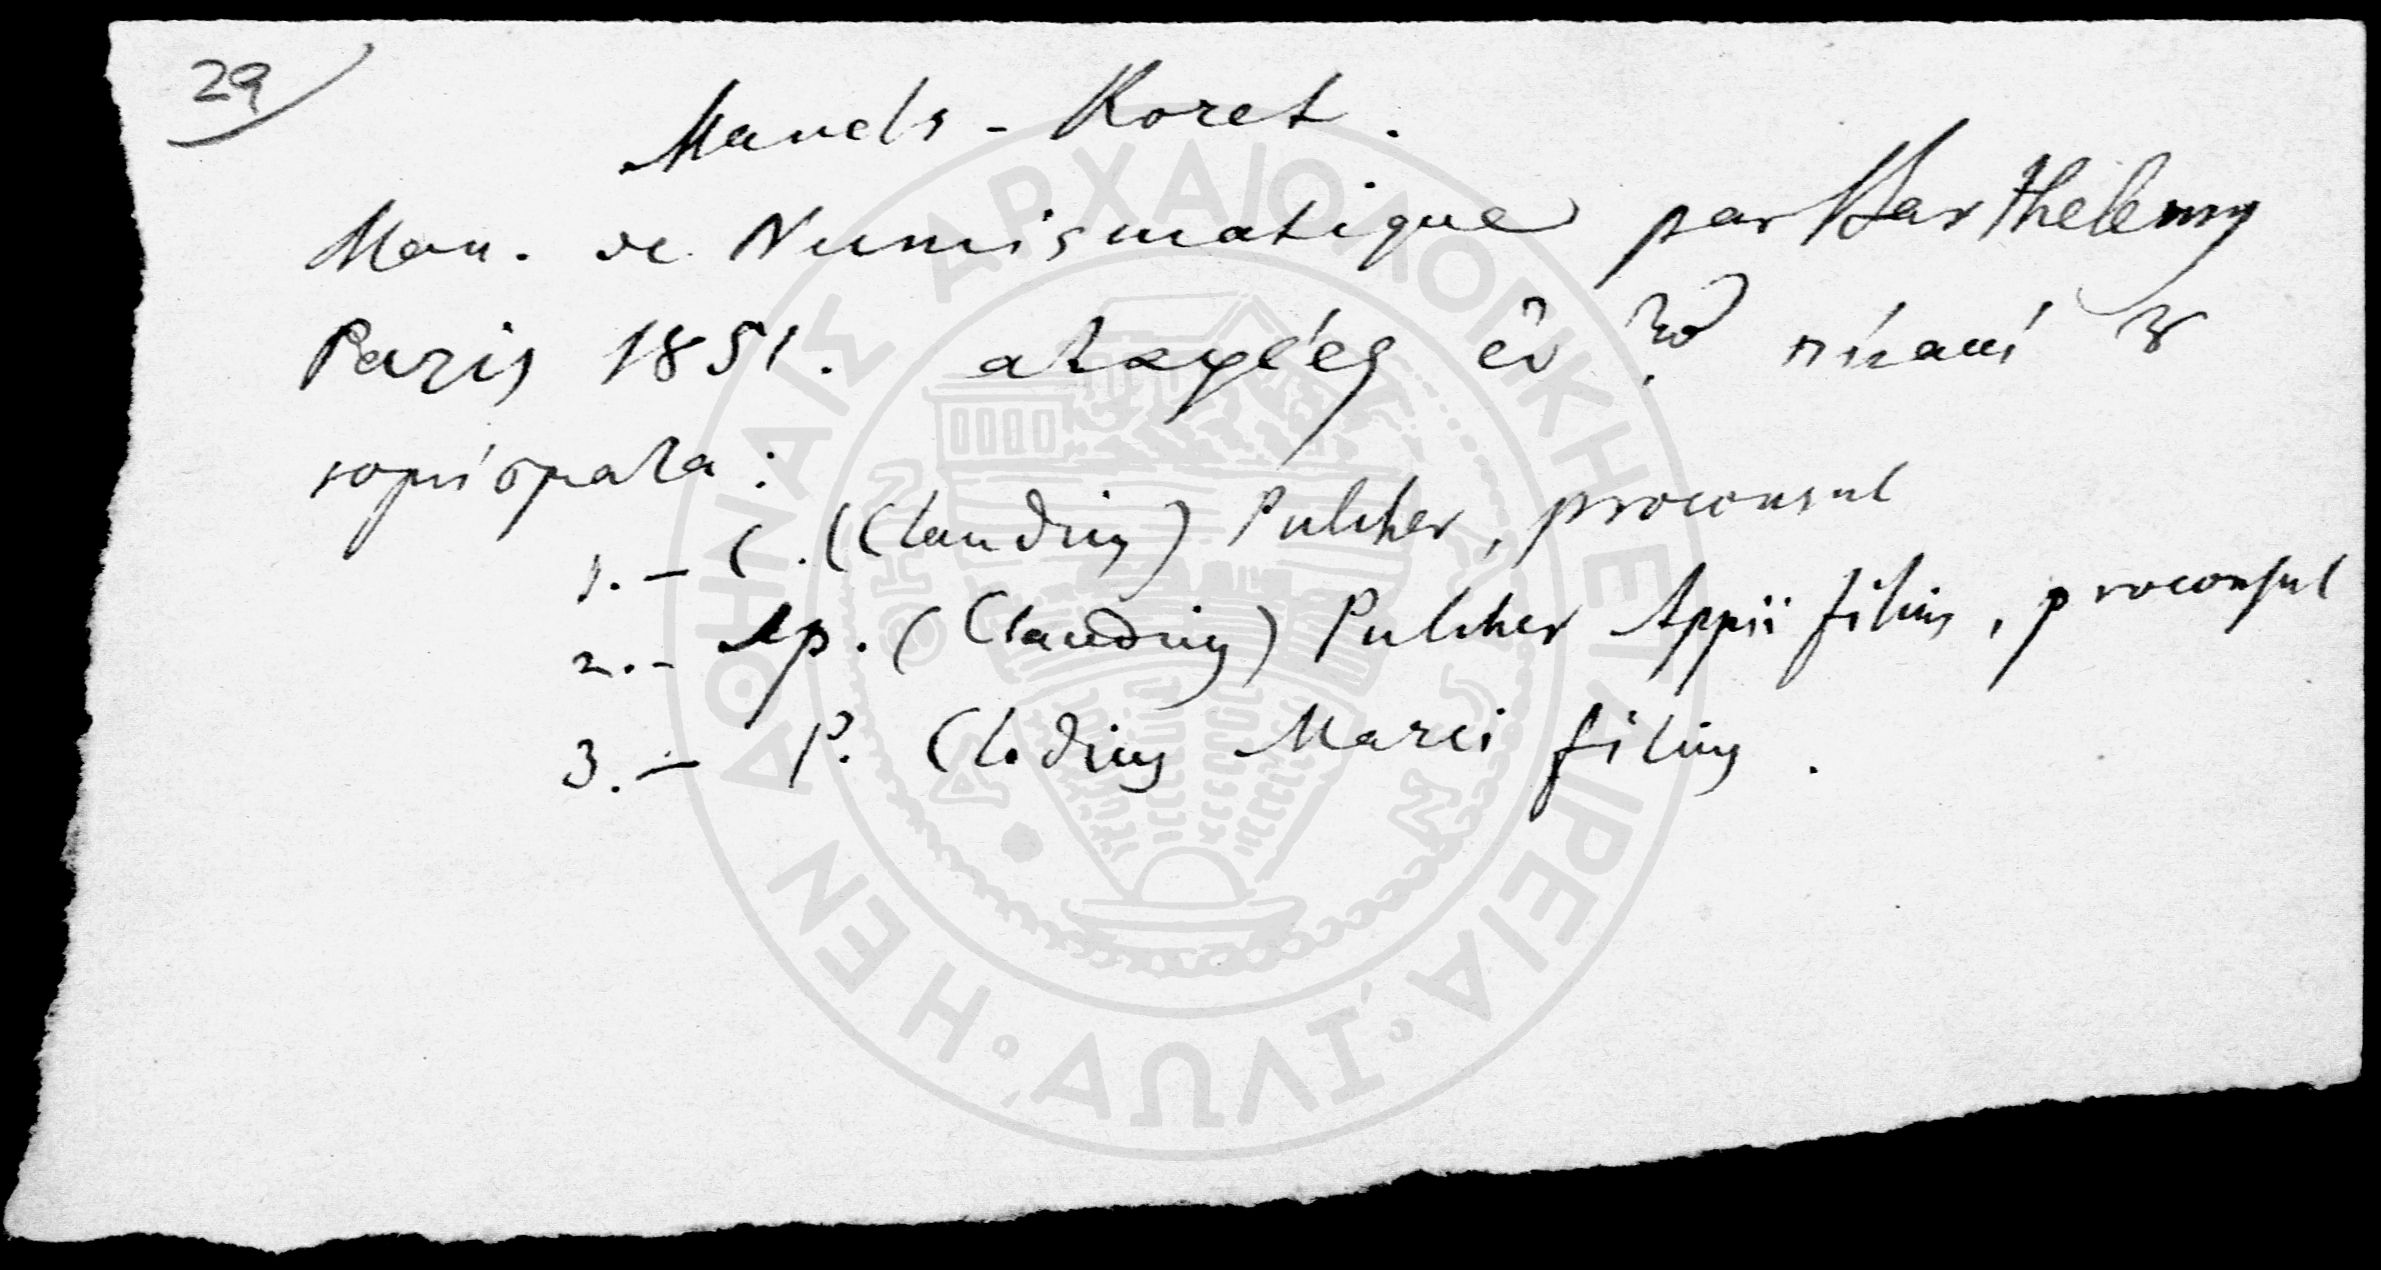 29
Manels - Roret.
Man. de Numismatique par Barthelemy
Paris 1851. ἐν πίνακι
νομίσματα :
1. — C. (Claudius) Pulcher, proconsul
2. - Ap. (Claudius) Pulcher Appii filius, proconsul
3. — P. Clodius Marci filius.
Η ΕΝ ΑΘΗΝΑΙΣ ΑΡΧΑΙΟΛΟΓΙΚΗ ΕΤΑΙΡΕΙΑ